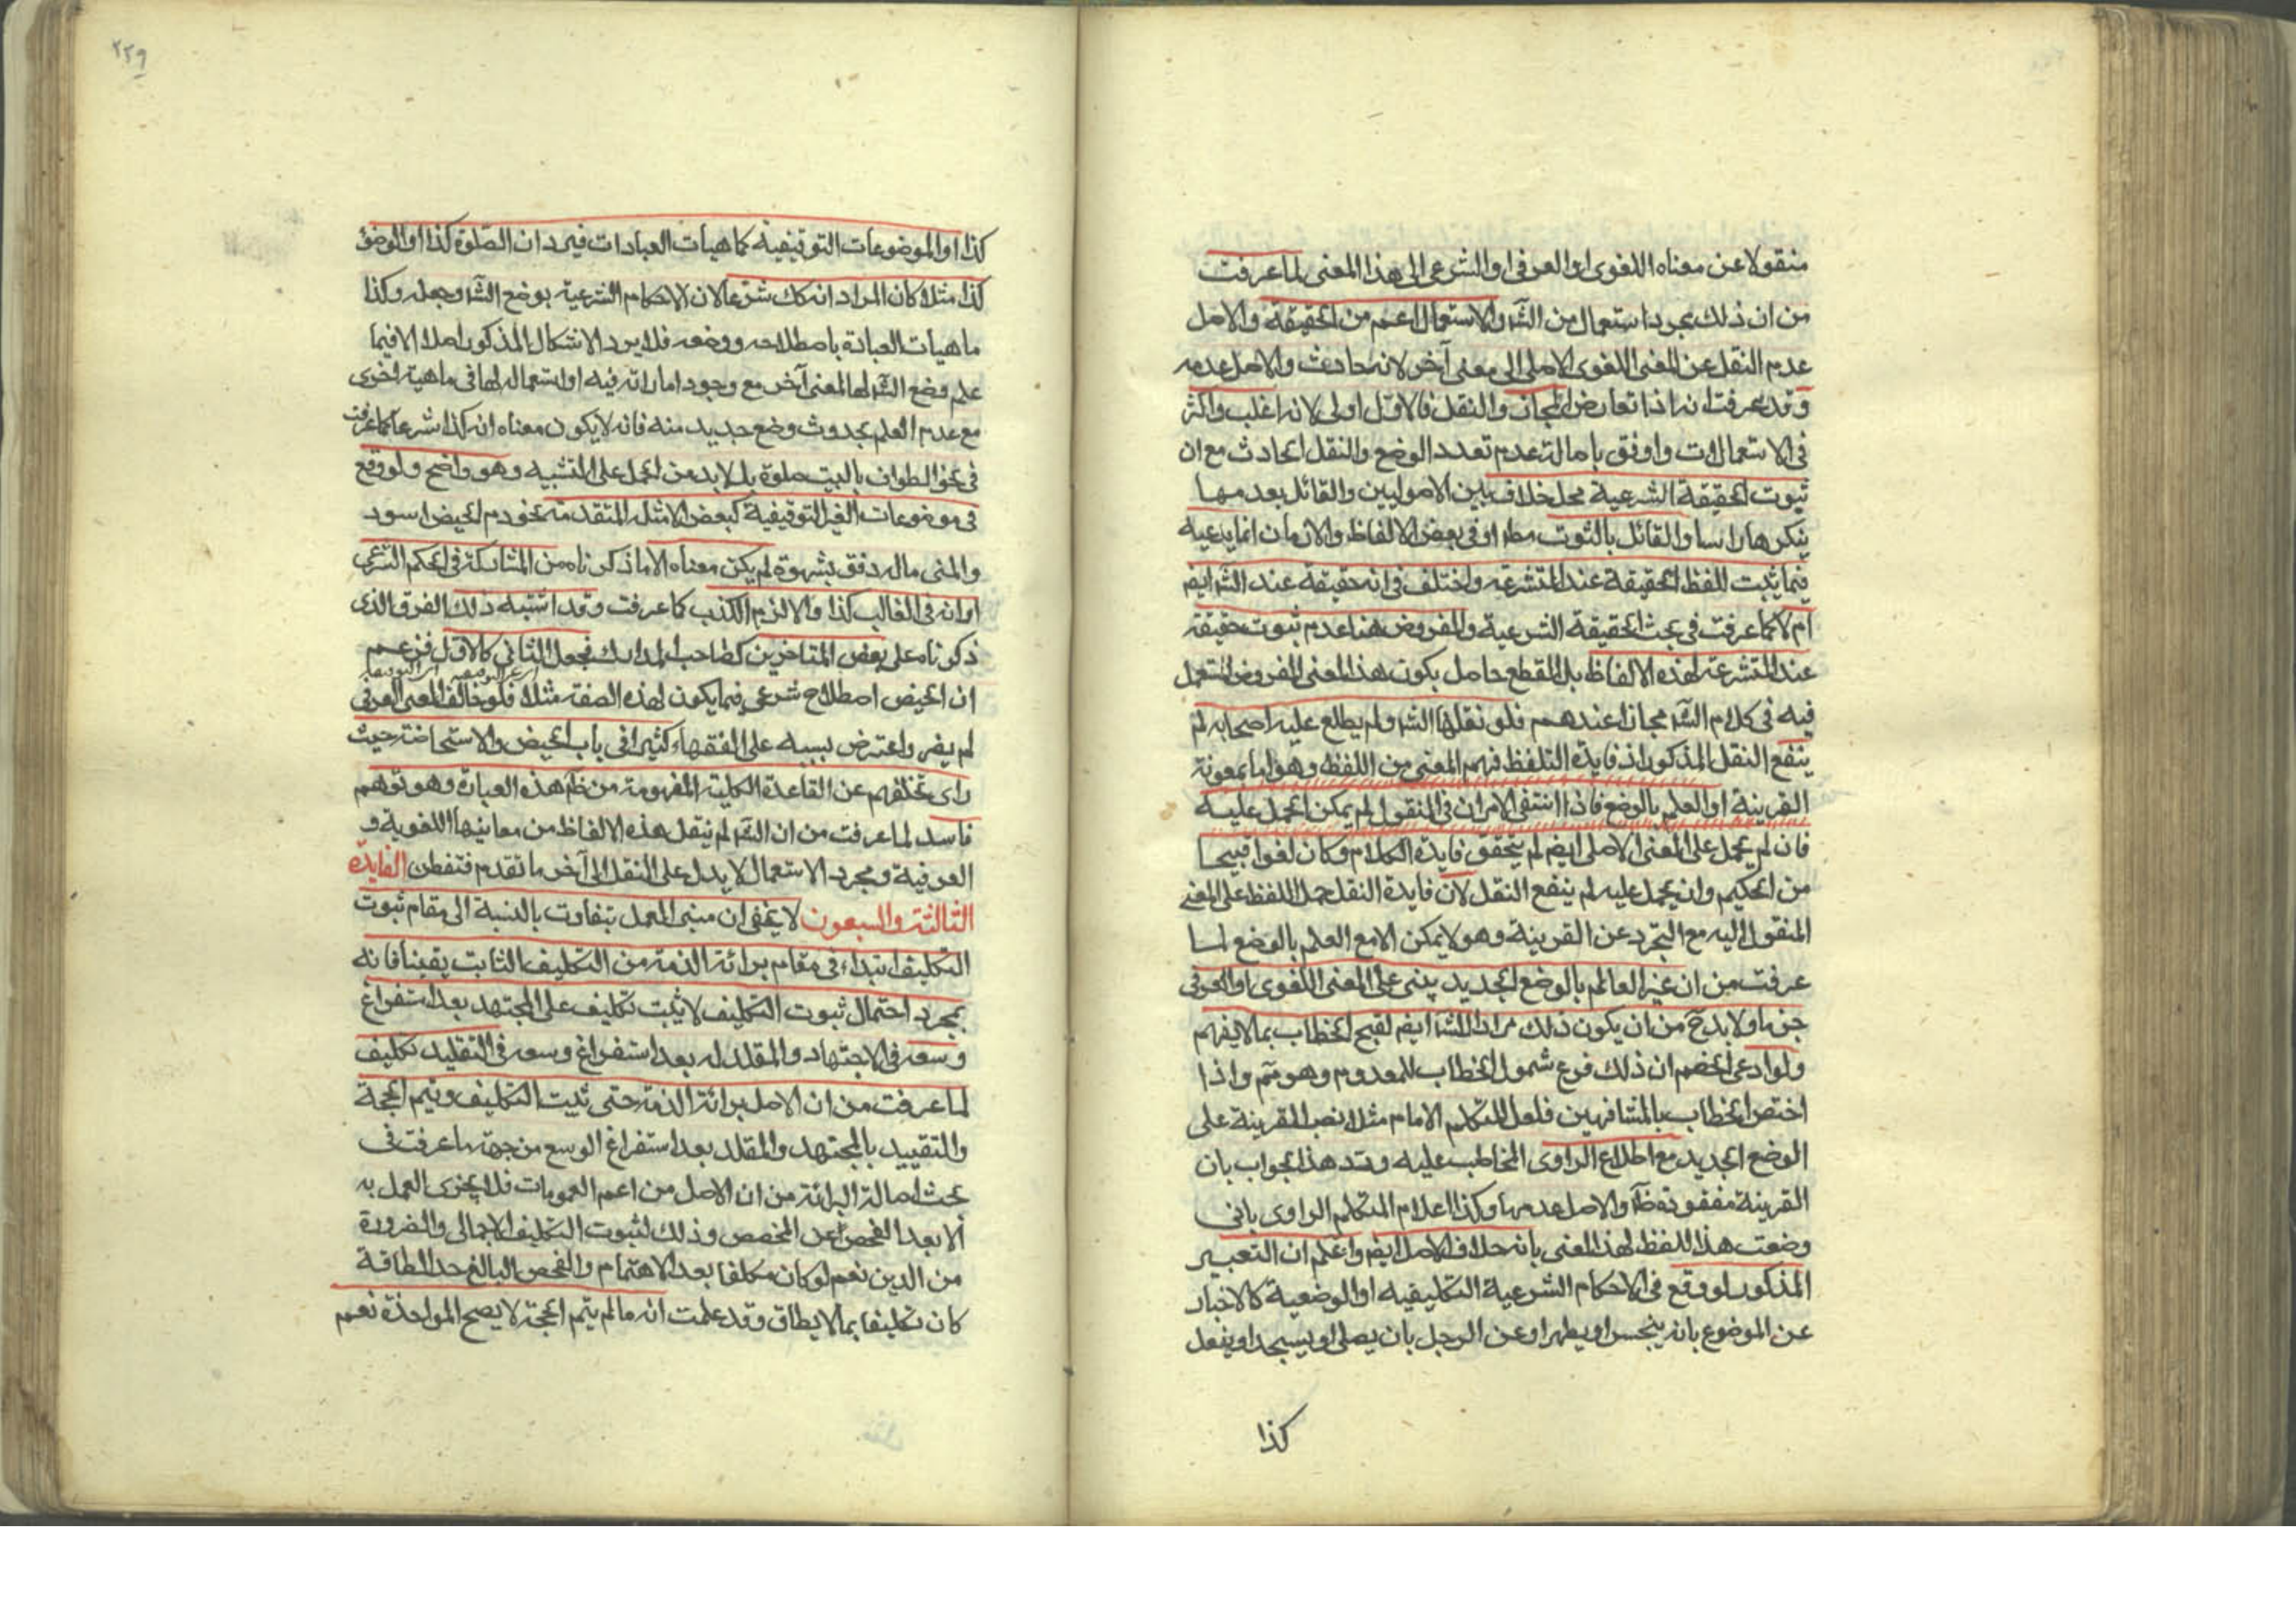 منقولا عن معناه اللغوى او العرفى او الشرعى الى هذا المعنى لما عرفت
من ان ذلك بمجرد استعمال من الشّه والاستعمال اعم من الحقيقة والاصل
عدم النقل عن المعنى اللغوى الاصلى الى معنى آخر لانه حادث والاصل عدمه
وقد عرفت انه اذا تعارض المجاز والنقل فالاوّل اولى لانه اغلب واكثر
فى الاستعمالات واوفق باصالة عدم تعدد الوضع والنقل الحادث مع ان
ثبوت الحقيقة الشرعية محل خلاف بين الاصوليين والقائل بعدمها
ينكرها راسا والقائل بالثبوت مطه او فى بعض الالفاظ والازمان انما يدعيه
فيما يثبت للفظ الحقيقة عند المتشرعه واختلف فى انه حقيقة عند الشه ايضا
ام لا كما عرفت فى بحث الحقيقة الشرعية والمفروض هنا عدم ثبوت حقيقة
عند المتشرعة لهذه الالفاظ بل القطع حاصل بكون هذا المعنى المفروض المستعمل
فيه فى كلام الشه مجازا عندهم فلو نقلها الشه ولم يطلع عليه اصحابه لم
ينفع النقل المذكور اذ فايدة التلفظ فهم المعنى من اللفظ وهو اما بمعونة
القرينة او العلم بالوضع فاذا انتفى الامران فى المنقول لم يمكن الحمل عليه
فان لم يحمل على المعنى الاصلى ايضا لم يتحقق فايدة الكلام وكان لغوا قبيحا
من الحكيم وان يحمل عليه لم ينفع النقل لان فايدة النقل حمل اللفظ على المعنى
المنقول اليه مع التجرد عن القرينة وهو لا يمكن الا مع العلم بالوضع لما
عرفت من ان غير العالم بالوضع الجديد يبنى على المعنى اللغوى او العرفى
جزما ولا بدّ ح من ان يكون ذلك مرادا للشه ايضا لقبح الخطاب بما لا يفهم
ولو ادعى الخصم ان ذلك فرع شمول الخطاب للمعدوم وهو مم واذا
اختص الخطاب بالمشافهين فلعل المتكلم الامام مثلا نصب القرينة على
الوضع الجديد مع اطلاع الراوى المخاطب عليه وسد هذا الجواب بان
القرينة مفقودة ظا والاصل عدمها وكذا اعلام المتكلم الراوى بانى
وضعت هذا اللفظ لهذا المعنى بانه خلاف الاصل ايضا واعلم ان التعبير
المذكور لو وقع فى الاحكام الشرعية التكليفيه او الوضعية كالاخبار
عن الموضوع بانه ينجس او يطهر او عن الرجل بان يصلى او يسجد او يفعل
كذا
٢٢٩
كذا او الموضوعات التوقيفية كماهيات العبادات فيرد ان الصلوة كذا او الوضوء
كذا مثلا كان المراد انه كك شرعا لان الاحكام الشرعية بوضع الشه وجعله وكذا
ماهيات العبادة باصطلاحه ووضعه فلا يرد الاشكال المذكور اصلا الا فيما
علم وضع الشه لها لمعنى آخر مع وجود اماراته فيه او استعماله لها فى ماهية اخرى
مع عدم العلم بحدوث وضع جديد منه فانه لا يكون معناه انه كذا شرعا كما عرفت
فى نحو الطواف بالبيت صلوة بل لا بد من الحمل على التشبيه وهو واضح ولو وقع
فى موضوعات الغير التوقيفية كبعض الامثله المتقدمة نحو دم الحيض اسود
والمنى ماله دفق بشهوة لم يكن معناه الا ما ذكرناه من المشاركة فى الحكم الشرعى
او انه فى الغالب كذا والا لزم الكذب كما عرفت وقد اشتبه ذلك الفرق الذى
ذكرناه على بعض المتاخرين كصاحب المدارك فجعل الثانى كالاوّل فزعم
ان الحيض اصطلاح شرعى فيما يكون لهذه الصفة مثلا فلو خالف المعنى العرفى
لم يضر واعترض بسببه على الفقهاء كثيرا فى باب الحيض والاستحاضة حيث
راى تخلفهم عن القاعدة الكلية المفهومة من ظم هذه العبارة وهو توهم
فاسد لما عرفت من ان الشه لم ينقل هذه الالفاظ من معانيها اللغوية و
العرفية ومجرد الاستعمال لا يدل على النقل الى آخر ما تقدم فتفطن الفايدة
الثالثة والسبعون لا يخفى ان مبنى العمل يتفاوت بالنسبة الى مقام ثبوت
التكليف ابتداء فى مقام برائة الذمة من التكليف الثابت يقينا فانه
بمجرد احتمال ثبوت التكليف لا يثبت تكليف على المجتهد بعد استفراغ
وسعه فى الاجتهاد والمقلد له بعد استفراغ وسعه فى التقليد تكليف
لما عرفت من ان الاصل برائة الذمة حتى يثبت التكليف ويتم الحجة
والتقييد بالمجتهد والمقلد بعد استفراغ الوسع من جهة ما عرفت فى
بحث اصالة البرائة من ان الاصل من اعم العمومات فلا يجزى العمل به
الا بعد الفحص عن المخصص وذلك لثبوت التكليف الاجمالى والضرورة
من الدين نعم لو كان مكلفا بعد الاهتمام والفحص البالغ حد الطاقة
كان تكليفا بما لا يطاق وقد علمت انه ما لم يتم الحجة لا يصح المواخذة نعم